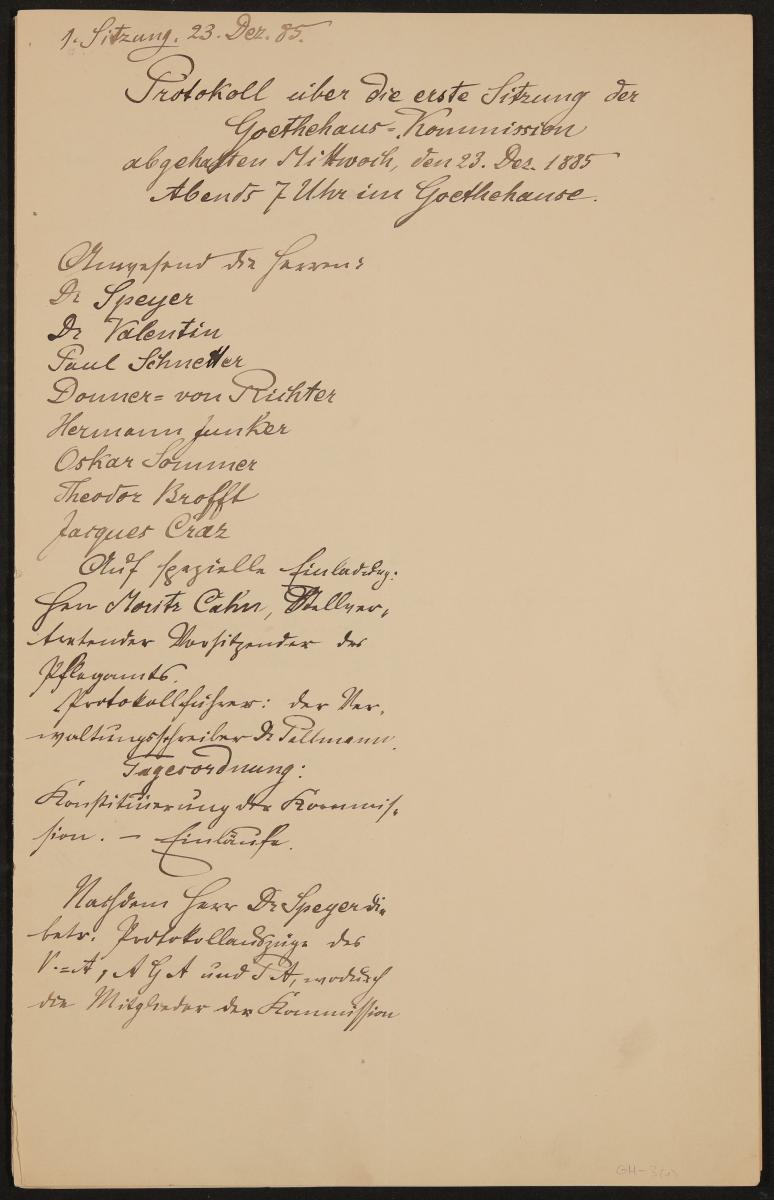 1. Sitzung. 23. Dez. 85.
Protokoll über die erste Sitzung der
Goethehaus-Kommission
abgehalten Mittwoch, den 23. Dez. 1885
Abends 7 Uhr im Goethehause.
Anwesend die Herren:
Dr Speyer
Dr Valentin
Paul Schnetter
Donner= von Richter
Hermann Junker
Oskar Sommer
Theodor Brofft
Jacques
Auf spezielle Einladung:
Herr Moritz Cahn, Stellver-
tretender Vorsitzender des
Pflegamts.
Protokollführer: der Ver-
waltungsschreiber Dr Pallmann.
Tagesordnung:
Konstituierung der Kommis-
sion. – Einläufe.
Nachdem Herr Dr Speyer die
betr. Protokollauszüge des
V.=A, AGA und FA, wodurch
die Mitglieder der Kommission